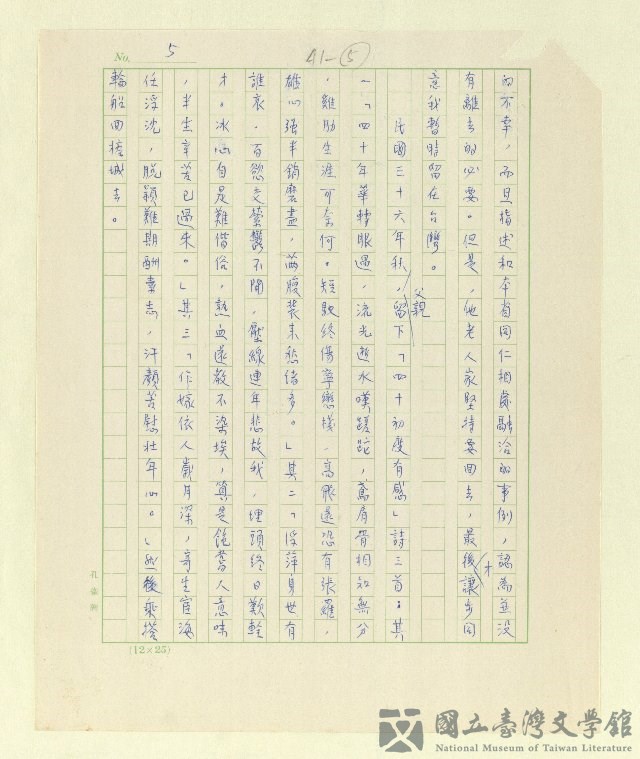 No. 5
41-⑤
的不幸,而且指述和本省同仁相處融洽的事例,認為並沒
有離去的必要。但是,他老人家堅持要回去,最後才讓步同
意我暫時留在台灣。
民國三十六年秋,父親留下「四十初度有感」詩三首:其
一「四十年華轉眼過,流光逝水嘆蹉跎,鳶肩骨相知無分
,雞肋生涯可奈何。短馭終傷棧,高飛還恐有張羅,
雄心強半銷磨盡,滿腹裝來愁緒多。」其二「浮萍身世有
誰哀,百慾交縈鬱不開,壓線連年悲故我,埋頭終日歎轗
才。冰心自是難偕俗,熱血遂教不染埃,算是飽嘗人意味
,半生辛苦已過來。」其三「作嫁依人歲月深,寄生宦海
任浮沈,脫穎難期酬素志,汗顏苦慰壯年心。」然後乘搭
輪船回檳城去。
孔 製
(12×25)
國立臺灣文學館
National Museum of Taiwan Literature